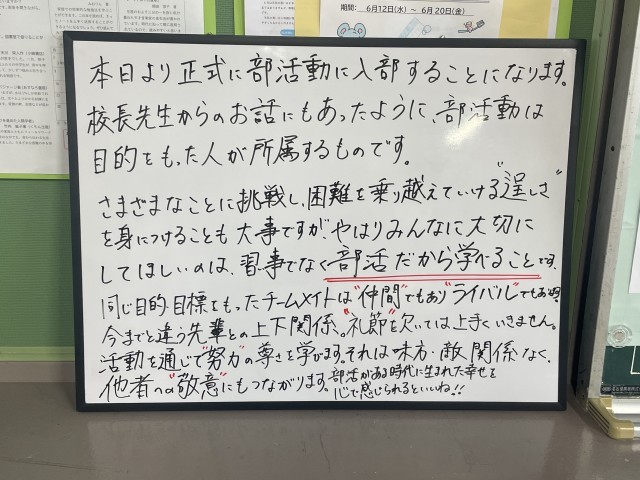 期間： 6月12日(水) ～ 6月20日(金)
本日より正式に部活動に入部することになります。
校長先生からのお話にもあったように、部活動は
目的をもった人が所属するものです。
さまざまなことに挑戦し、困難を乗り越えていける"逞しさ"
を身につけることも大事ですが、やはりみんなに大切に
してほしいのは、習い事でなく部活だから学べることです。
同じ目的・目標をもったチームメイトは"仲間"でもあり"ライバル"でもあり
今までと違う先輩との上下関係。"礼節"を欠いては上手くいきません。
活動を通じて"努力"の尊さを学びます。それは味方・敵、関係なく、
他者への"敬意"にもつながります。部活がある時代に生まれた幸せを
心で感じられるといいね!!